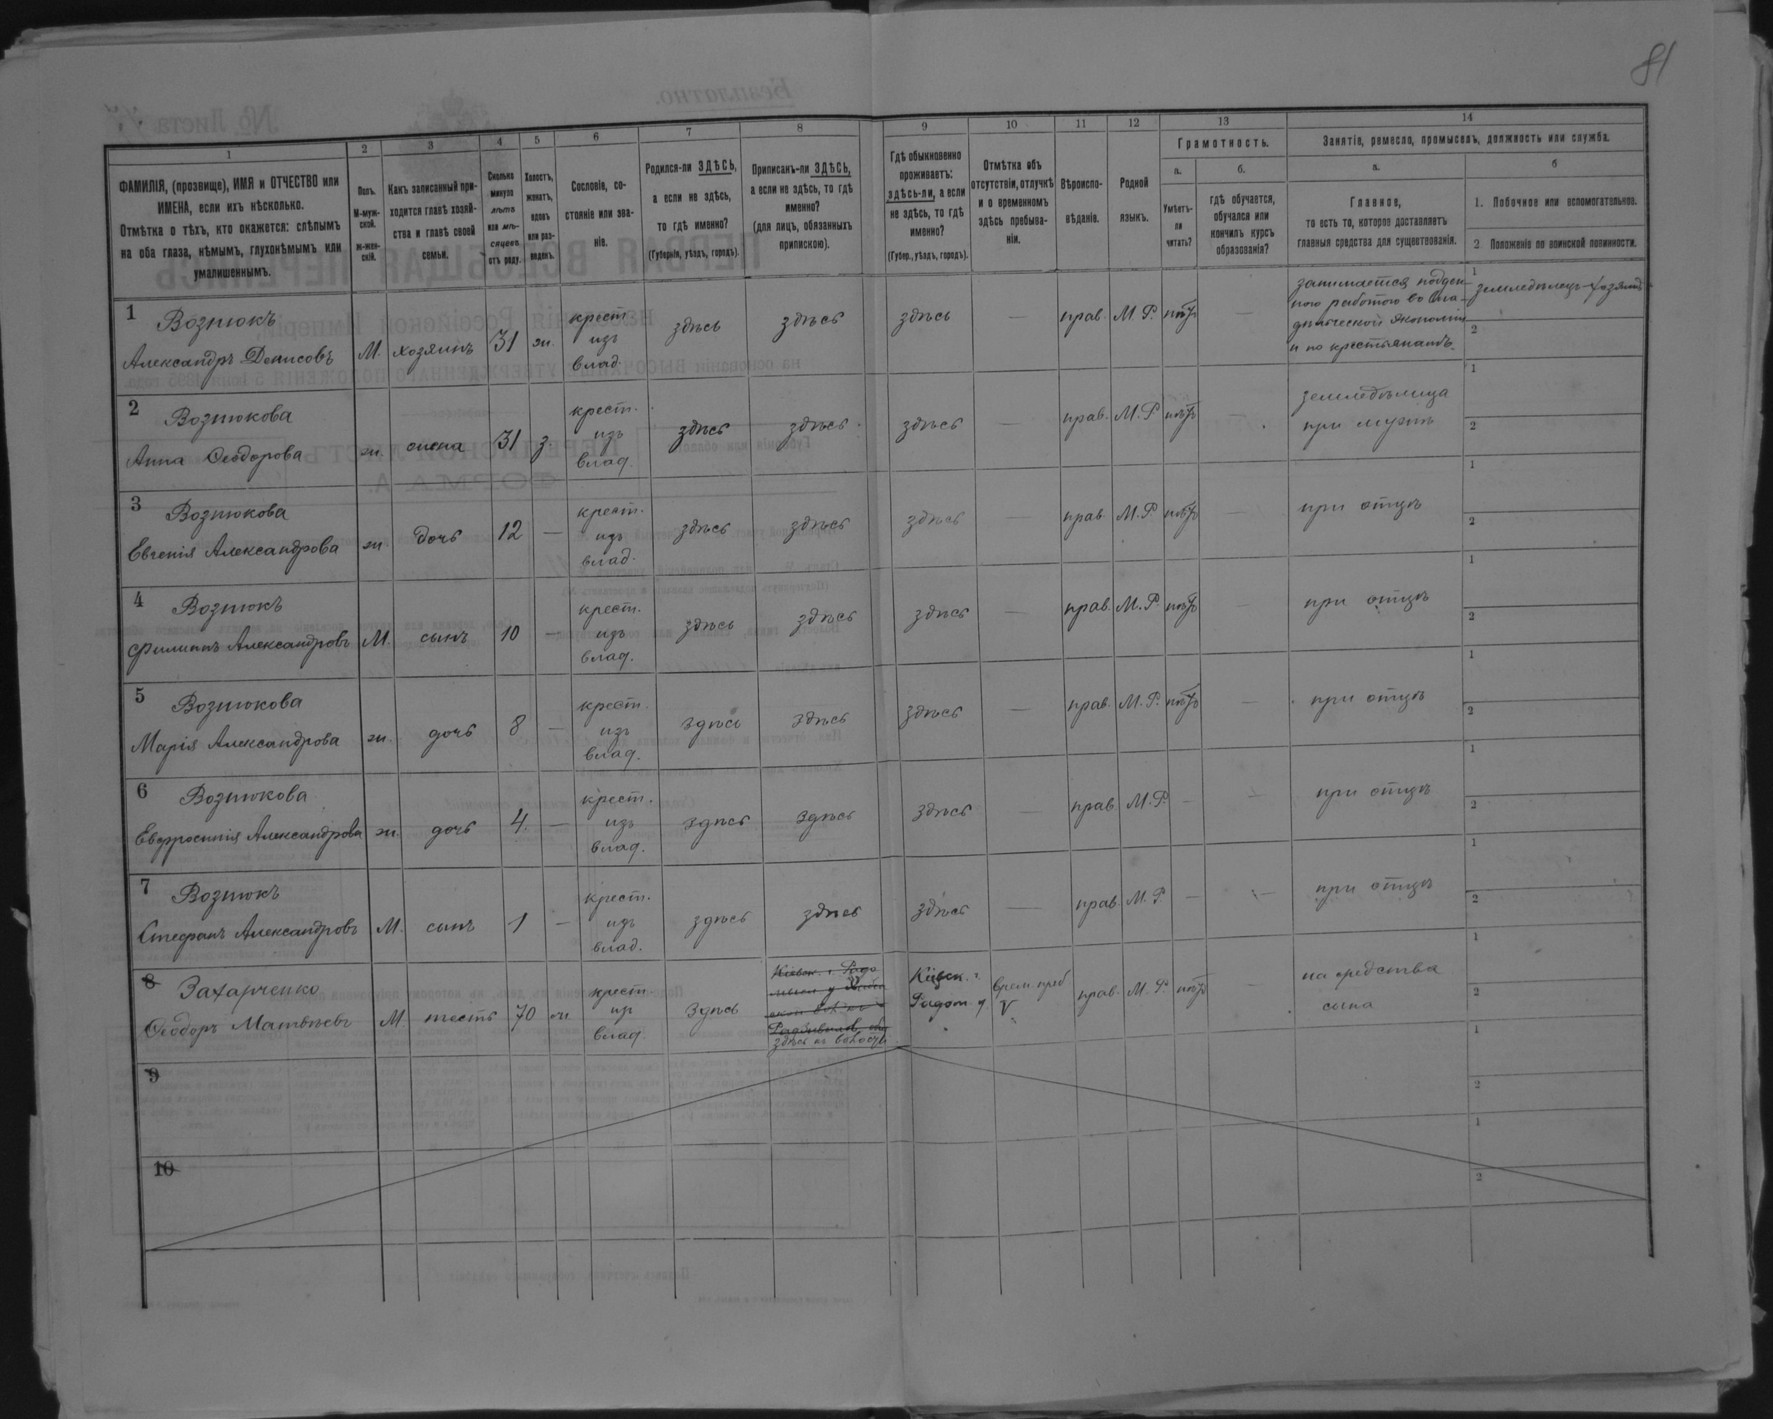 81
1
2
3
4
5
6
7
8
9
10
11
12
13
14
ФАМИЛІЯ, (прозвище), ИМЯ и ОТЧЕСТВО или
ИМЕНА, если ихъ нѣсколько.
Отмѣтка о тѣхъ, кто окажется: слѣпымъ
на оба глаза, нѣмымъ, глухонѣмымъ или
умалишеннымъ.
Полъ.
М-муж-
ской.
Ж-жен-
скій.
Какъ записанный при-
ходится главѣ хозяй-
ства и главѣ своей
семьи.
Сколько
минуло
лѣтъ
или мѣ-
сяцевъ
отъ роду.
Холостъ,
женатъ,
вдовъ
или раз-
веденъ.
Сословіе, со-
стояніе или зва-
ніе.
Родился-ли ЗДѢСЬ,
а если не здѣсь,
то гдѣ именно?
(Губернія, уѣздъ, городъ).
Приписанъ-ли ЗДѢСЬ,
а если не здѣсь, то гдѣ
именно?
(для лицъ, обязанныхъ
припискою).
Гдѣ обыкновенно
проживаетъ:
здѣсь-ли, а если
не здѣсь, то гдѣ
именно?
(Губер., уѣздъ, городъ).
Отмѣтка объ
отсутствіи, отлучкѣ
и о временномъ
здѣсь пребыва-
ніи.
Вѣроиспо-
вѣданіе.
Родной
языкъ.
Грамотность.
а.
Умѣетъ-
ли
читать?
б.
гдѣ обучается,
обучался или
кончилъ курсъ
образованія?
Занятіе, ремесло, промыселъ, должность или служба.
а.
Главное,
то есть то, которое доставляетъ
главныя средства для существованія.
б
1. Побочное или вспомогательное.
2 Положеніе по воинской повинности.
1
Вознюкъ
Александръ Денисовъ
М.
хозяинъ
31
ж.
крест
изъ
влад.
здѣсь
здѣсь
здѣсь
—
прав.
М.Р.
нѣтъ
—
занимается поден-
ною работою во вла-
дѣльческой экономіи
и по крестьянамъ.
1
земледѣлецъ-хозяинъ
2
2
Вознюкова
Анна Ѳеодорова
ж.
жена
31
з.
крест.
изъ
влад.
здѣсь
здѣсь
здѣсь
—
прав.
М.Р
нѣтъ
—
земледѣлица
при мужѣ
1
2
3
Вознюкова
Евгенія Александрова
ж.
дочь
12
—
крест.
изъ
влад.
здѣсь
здѣсь
здѣсь
—
прав
М.Р
нѣтъ
—
при отцѣ
1
2
4
Вознюкъ
Филиппъ Александровъ
М.
сынъ
10
—
крест.
изъ
влад.
здѣсь
здѣсь
здѣсь
—
прав.
М.Р.
нѣтъ
—
при отцѣ
1
2
5
Вознюкова
Марія Александрова
ж.
дочь
8
—
крест.
изъ
влад.
здѣсь
здѣсь
здѣсь
—
прав.
М.Р.
нѣтъ
—
при отцѣ
1
2
6
Вознюкова
Евфросинія Александрова
ж.
дочь
4.
—
крест.
изъ
влад.
здѣсь
здѣсь
здѣсь
—
прав
М.Р.
—
—
при отцѣ
1
2
7
Вознюкъ
Стефанъ Александровъ
М.
сынъ
1
—
крест.
изъ
влад.
здѣсь
здѣсь
здѣсь
—
прав.
М.Р.
—
—
при отцѣ
1
2
8
Захарченко
Ѳеодоръ Матвѣевъ
М
тесть
70
крест
из
влад
здѣсь
здѣсь
Кіевск. г.
Радом. у
Врем. преб
V
прав.
М.Р.
нѣтъ
—
на средства
сына
1
2
9
1
2
10
1
2